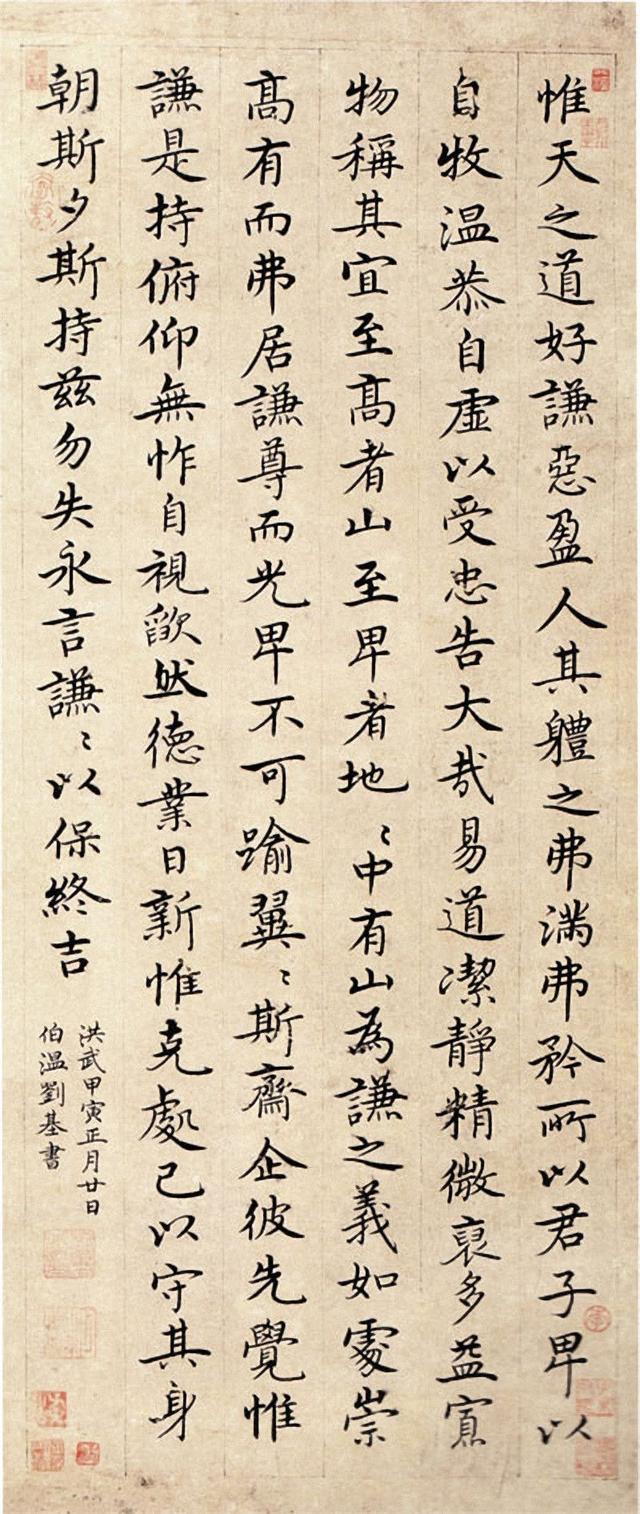 惟天之道好謙惡盈人其軆之弗滿弗矜所以君子卑以
自牧温恭自虛以受忠告大哉易道潔靜精微裒多益寡
物稱其宜至髙者山至卑者地〻中有山為謙之義如處崇
髙有而弗居謙尊而光卑不可踰翼〻斯齋企彼先覺惟
謙是持俯仰無怍自視歛然德業日新惟克處己以守其身
朝斯夕斯持兹勿失永言謙〻以保終吉
洪武甲寅正月廿日
伯温劉基書